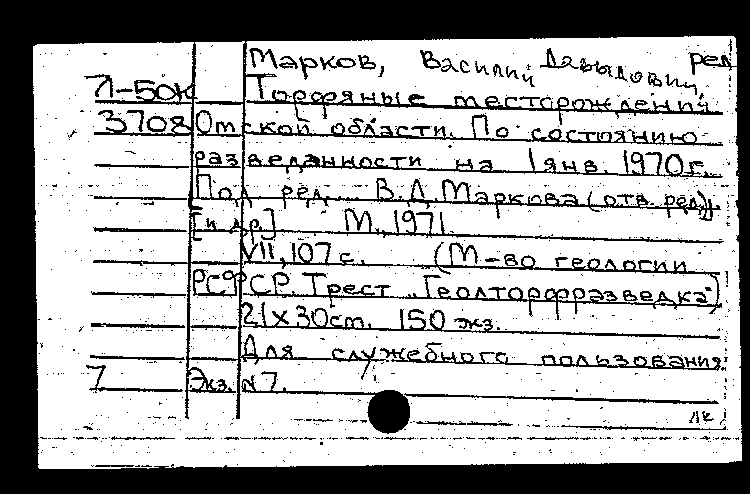 Марков, Василий Давыдович, ред.
Л-50к Торфяные месторождения
3708 Омской области. По состоянию
разведанности на 1 янв. 1970 г.
Под ред. В.Д. Маркова (отв. ред.)
[и др.] М., 1971.
VII, 107 с. (М-во геологии
РСФСР. Трест "Геолторфразведка")
21х30 cm. 150 экз.
Для служебного пользования.
7 Экз. №7.